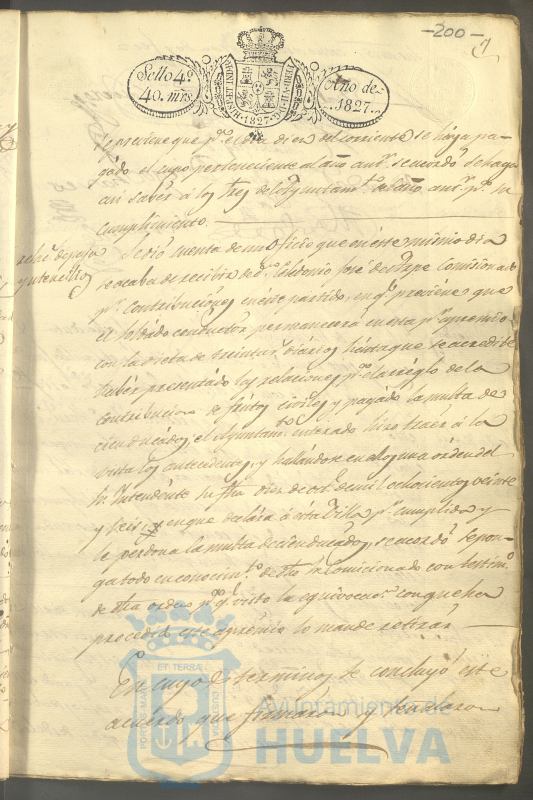 -200-
Sello 4º
40. mrs
HISPAN. ET IND. R
1827
Año de
1827
se previene que pª el dia diez del corriente se haya pa-
gado el cupo perteneciente al año antr se acordó se haga
asi saber á los del Ayuntamtº del año antr pª su
cumplimiento.
Se dió cuenta de un Oficio que en este mismo dia
se acaba de recibir de Dn Antonio José del Pope Comisionado
pr Contribuciones en este partido, en qe previene que
el Soldado conductor permanecerá en esta pr apremio
con la dieta de treinta rs diarios hasta que se acredite
haber presentado las relaciones pª el arreglo de la
contribucion de frutos civiles y pagado la multa de
cien ducados; el Ayuntamtº enterado hizo traer á la
vista los antecedentes, y hallandose en ellos una orden del
Sr Intendente fha diez de de mil ochocientos veinte
y seis, en que declara á esta Villa pr cumplida y
le perdona la multa de cien ducados, se acordó se pon-
ga todo en conocimtº de dho Sr Comisionado con testimº
de dha orden pª qe visto la equivocacn con que ha
procedido este apremio lo mande retirar
En cuyos terminos se concluyó este
acuerdo que firmaron y señalaron
sobre de paja
y utencilios
PORTUS MARIS
ET TERRAE
CUSTODIA
Ayuntamiento de
HUELVA